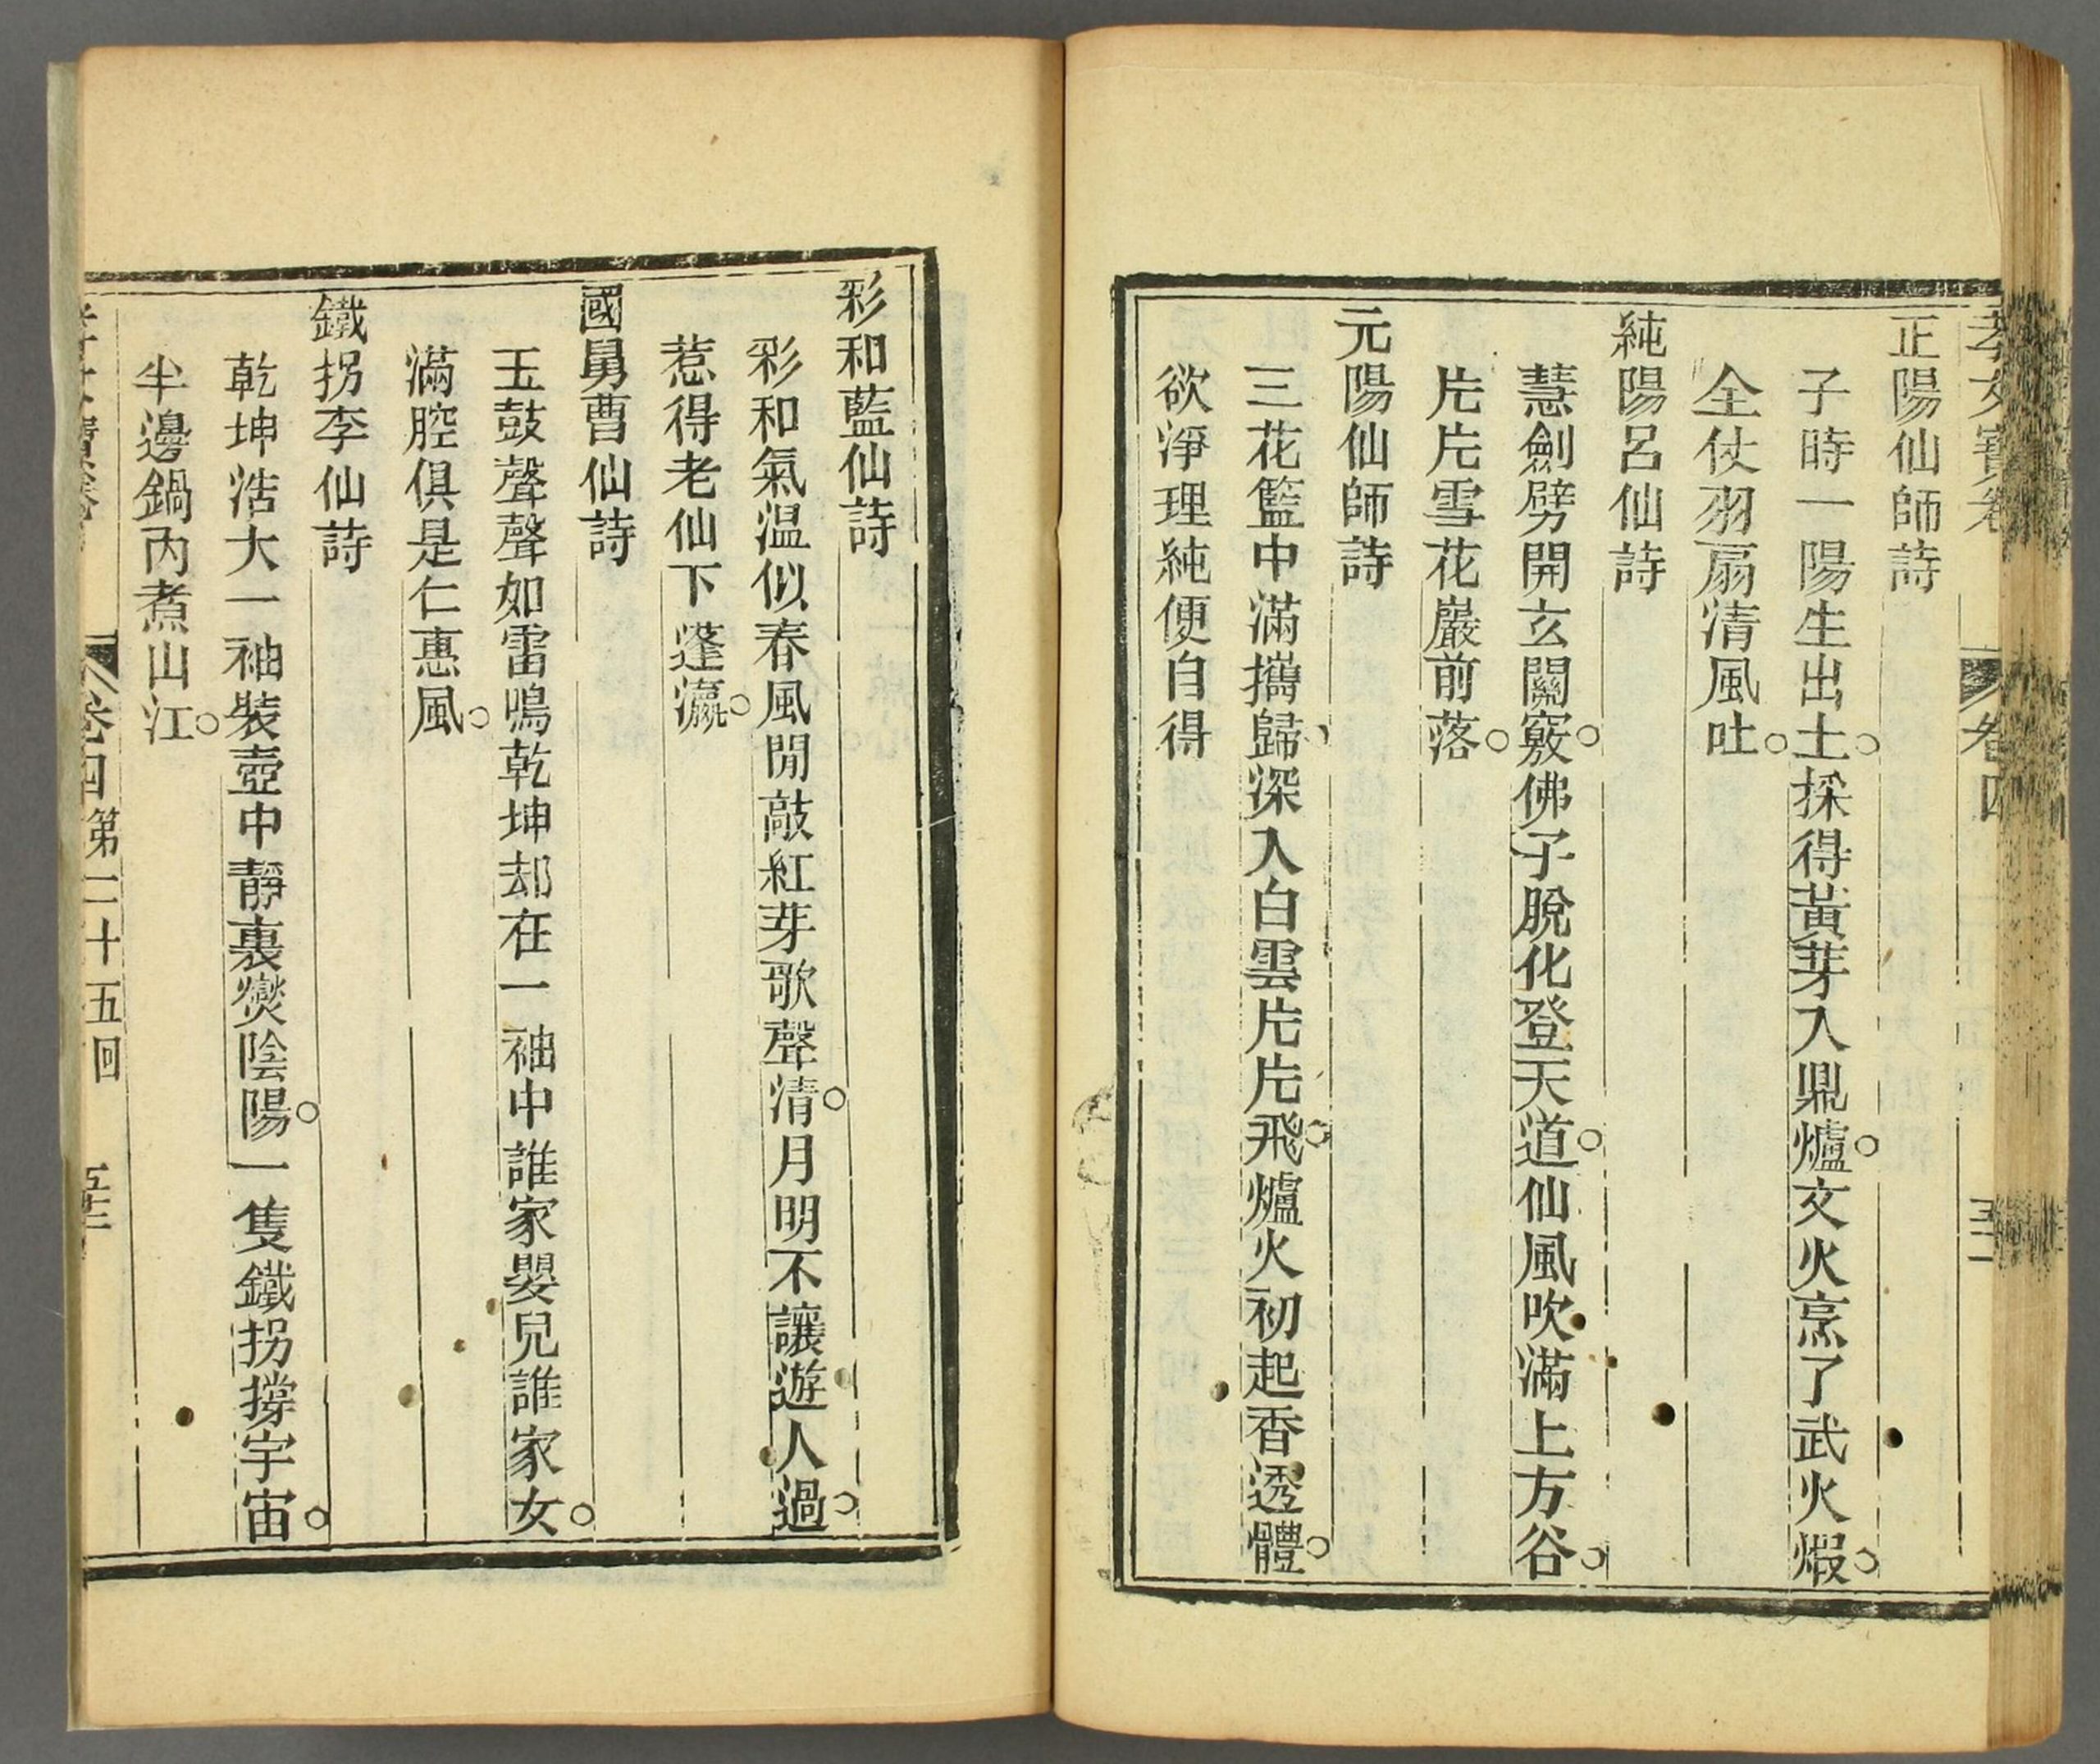 孝女寶卷 卷四 五十一
正陽仙師詩
子時一陽生出土○採得黃芽入鼎爐○文火烹了武火煆○
全仗羽扇清風吐○
純陽呂仙詩
慧劍劈開玄關竅○佛子脫化登天道○仙風吹滿上方谷○
片片雪花巖前落○
元陽仙師詩
三花籃中滿擕歸○深入白雲片片飛○爐火初起香透體○
欲淨理純便自得
彩和藍仙詩
彩和氣温似春風閒敲紅芽歌聲清○月明不讓遊人過○
惹得老仙下蓬瀛○
國舅曹仙詩
玉鼓聲聲如雷鳴乾坤却在一袖中誰家嬰兒誰家女○
滿腔俱是仁惠風○
鐵拐李仙詩
乾坤浩大一袖裝壺中靜裏爕陰陽○一隻鐵拐撐宇宙○
半邊鍋內煮山江○
卷四 第二十五回 五十二